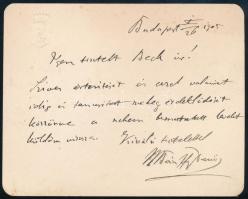 Budapest X/26 1905
Igen tisztelt Beck úr!
Szives értesítését és azzal valamint
eddig is tanusított meleg érdeklődését
köszönve a nekem bemutatott levelet
küldöm vissza.
Kiváló tisztelettel